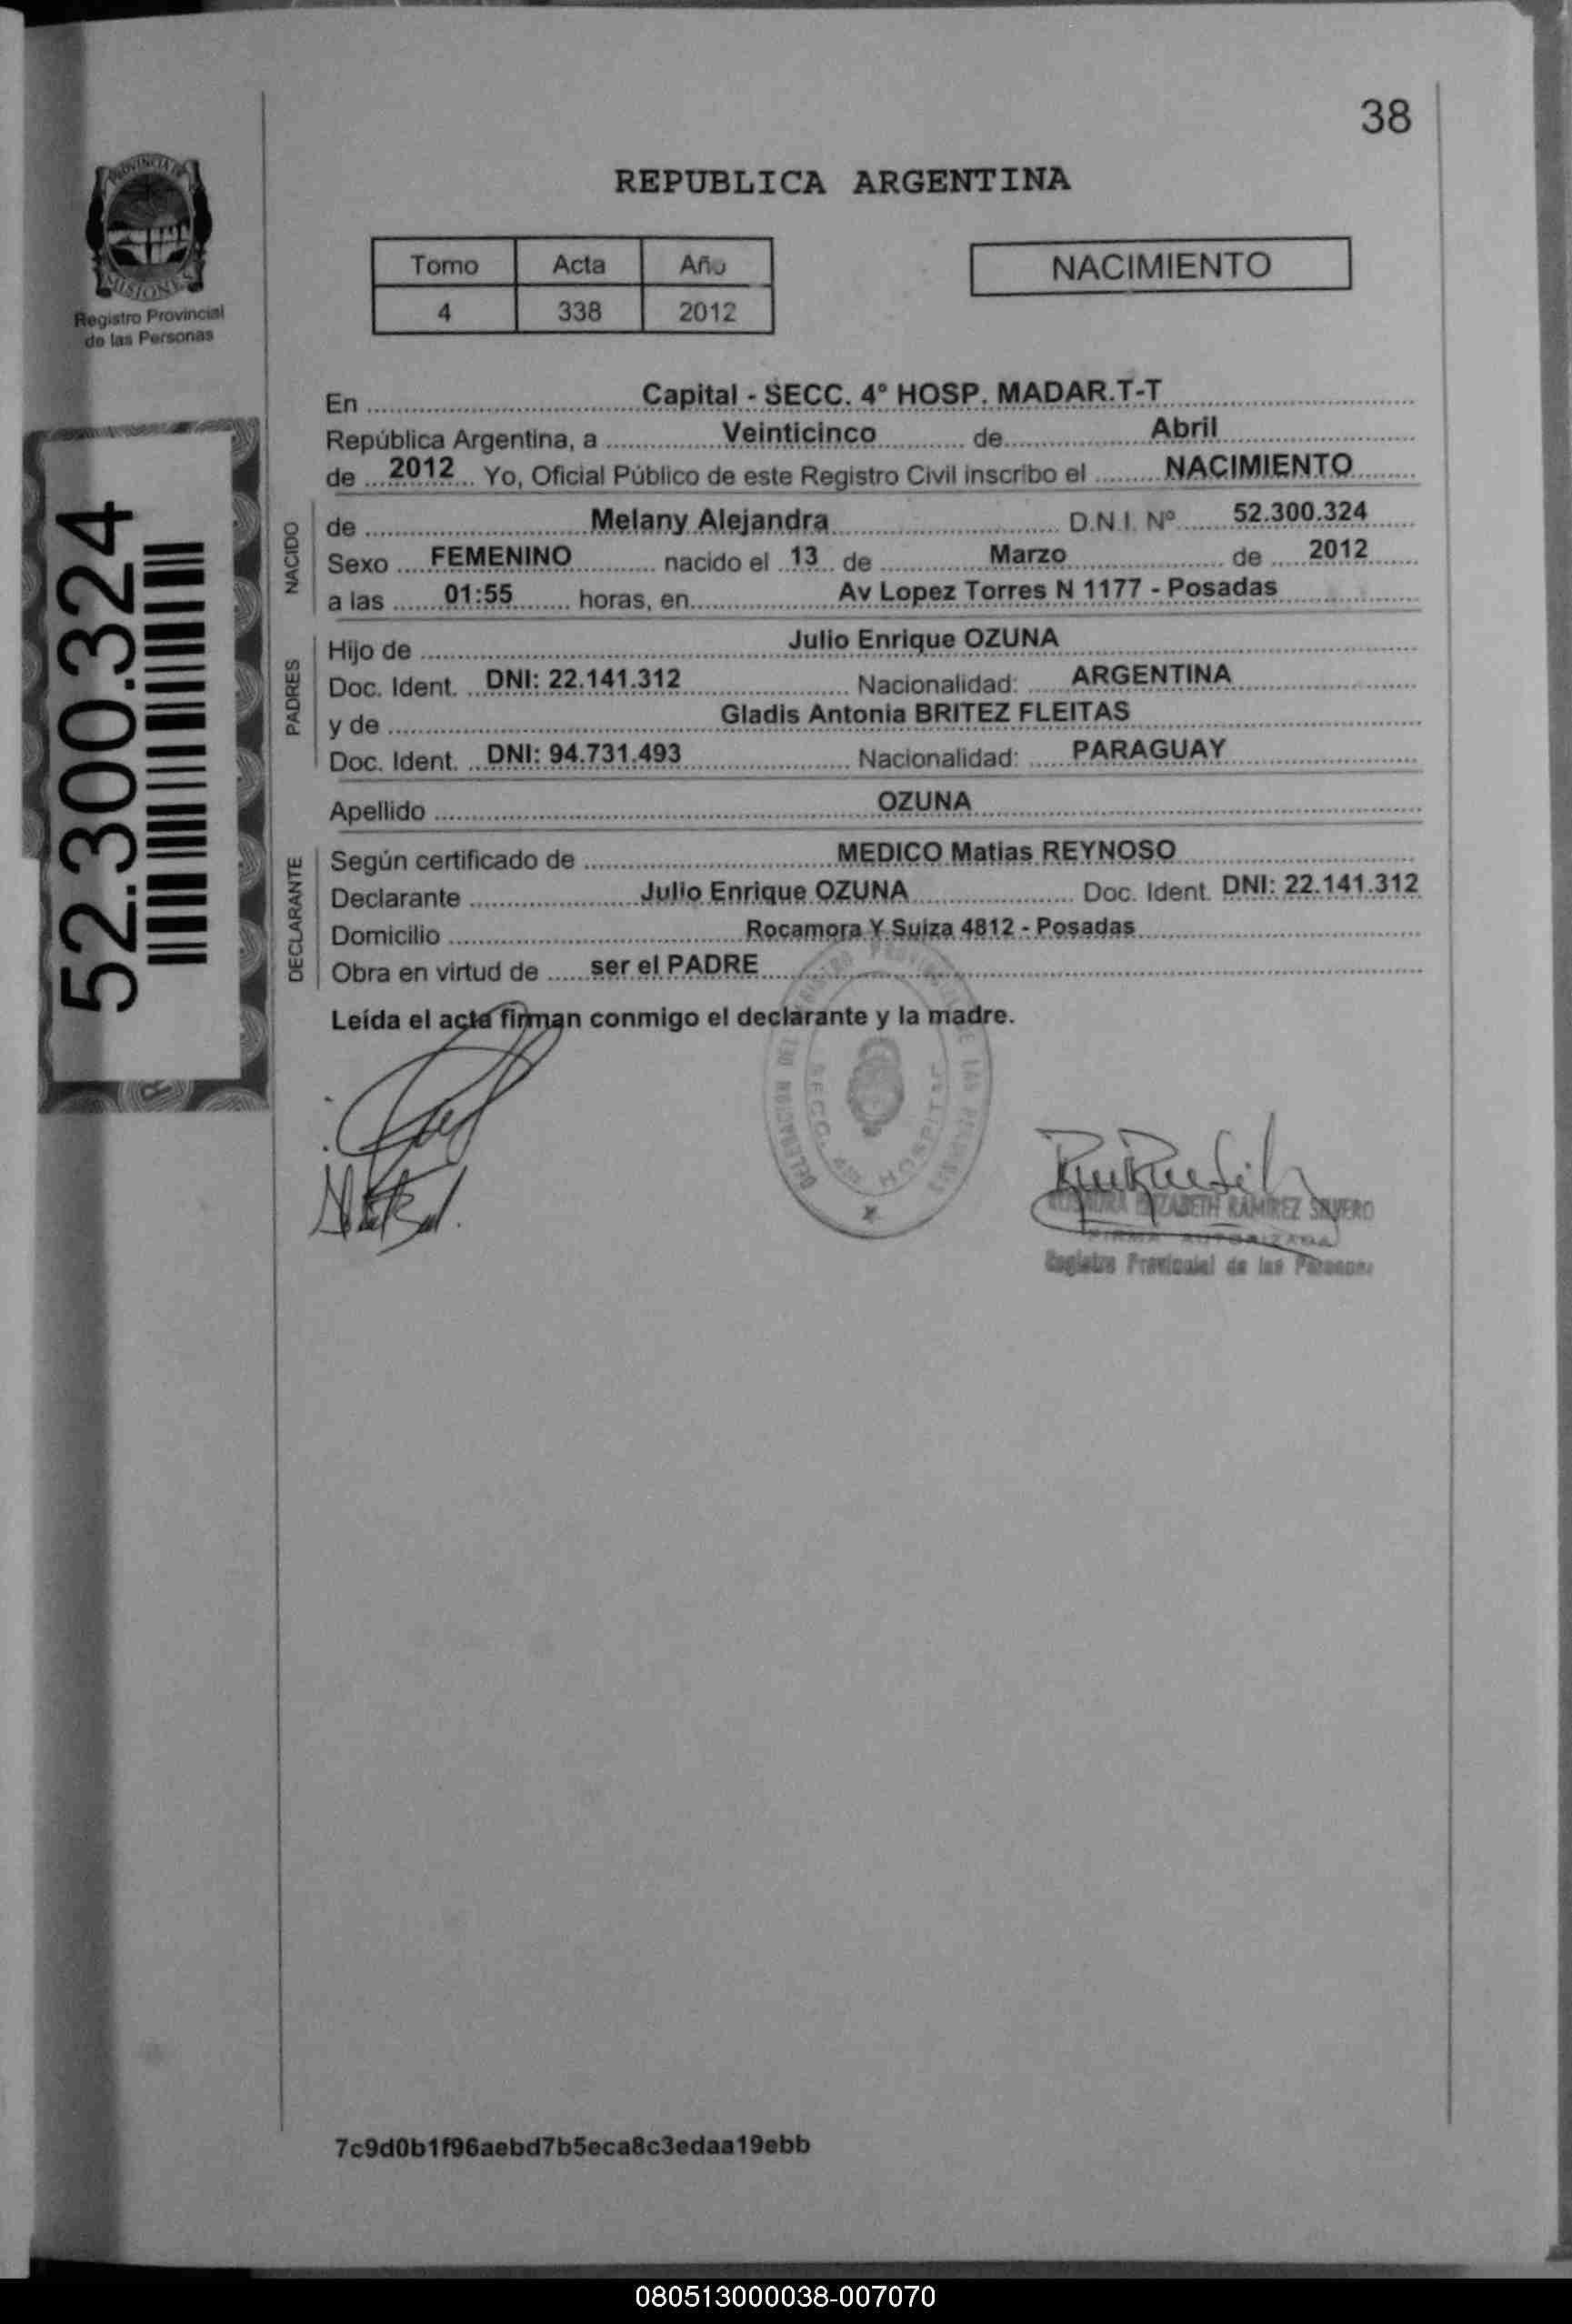 38
PROVINCIA DE
MISIONES
Registro Provincial
de las Personas
REPUBLICA ARGENTINA
Tomo Acta Año
4 338 2012
NACIMIENTO
52.300.324
En Capital - SECC. 4° HOSP. MADAR.T-T
República Argentina, a Veinticinco de Abril
de 2012 Yo, Oficial Público de este Registro Civil inscribo el NACIMIENTO
NACIDO
de Melany Alejandra D.N.I. Nº 52.300.324
Sexo FEMENINO nacido el 13 de Marzo de 2012
a las 01:55 horas, en Av Lopez Torres N 1177 - Posadas
PADRES
Hijo de Julio Enrique OZUNA
Doc. Ident. DNI: 22.141.312 Nacionalidad: ARGENTINA
y de Gladis Antonia BRITEZ FLEITAS
Doc. Ident. DNI: 94.731.493 Nacionalidad: PARAGUAY
Apellido OZUNA
DECLARANTE
Según certificado de MEDICO Matias REYNOSO
Declarante Julio Enrique OZUNA Doc. Ident. DNI: 22.141.312
Domicilio Rocamora Y Suiza 4812 - Posadas
Obra en virtud de ser el PADRE
Leída el acta firman conmigo el declarante y la madre.
SECC. HOSPITAL
ELIZABETH RAMIREZ SILVERO
FIRMA AUTORIZADA
Registro Provincial de las Personas
7c9d0b1f96aebd7b5eca8c3edaa19ebb
080513000038-007070